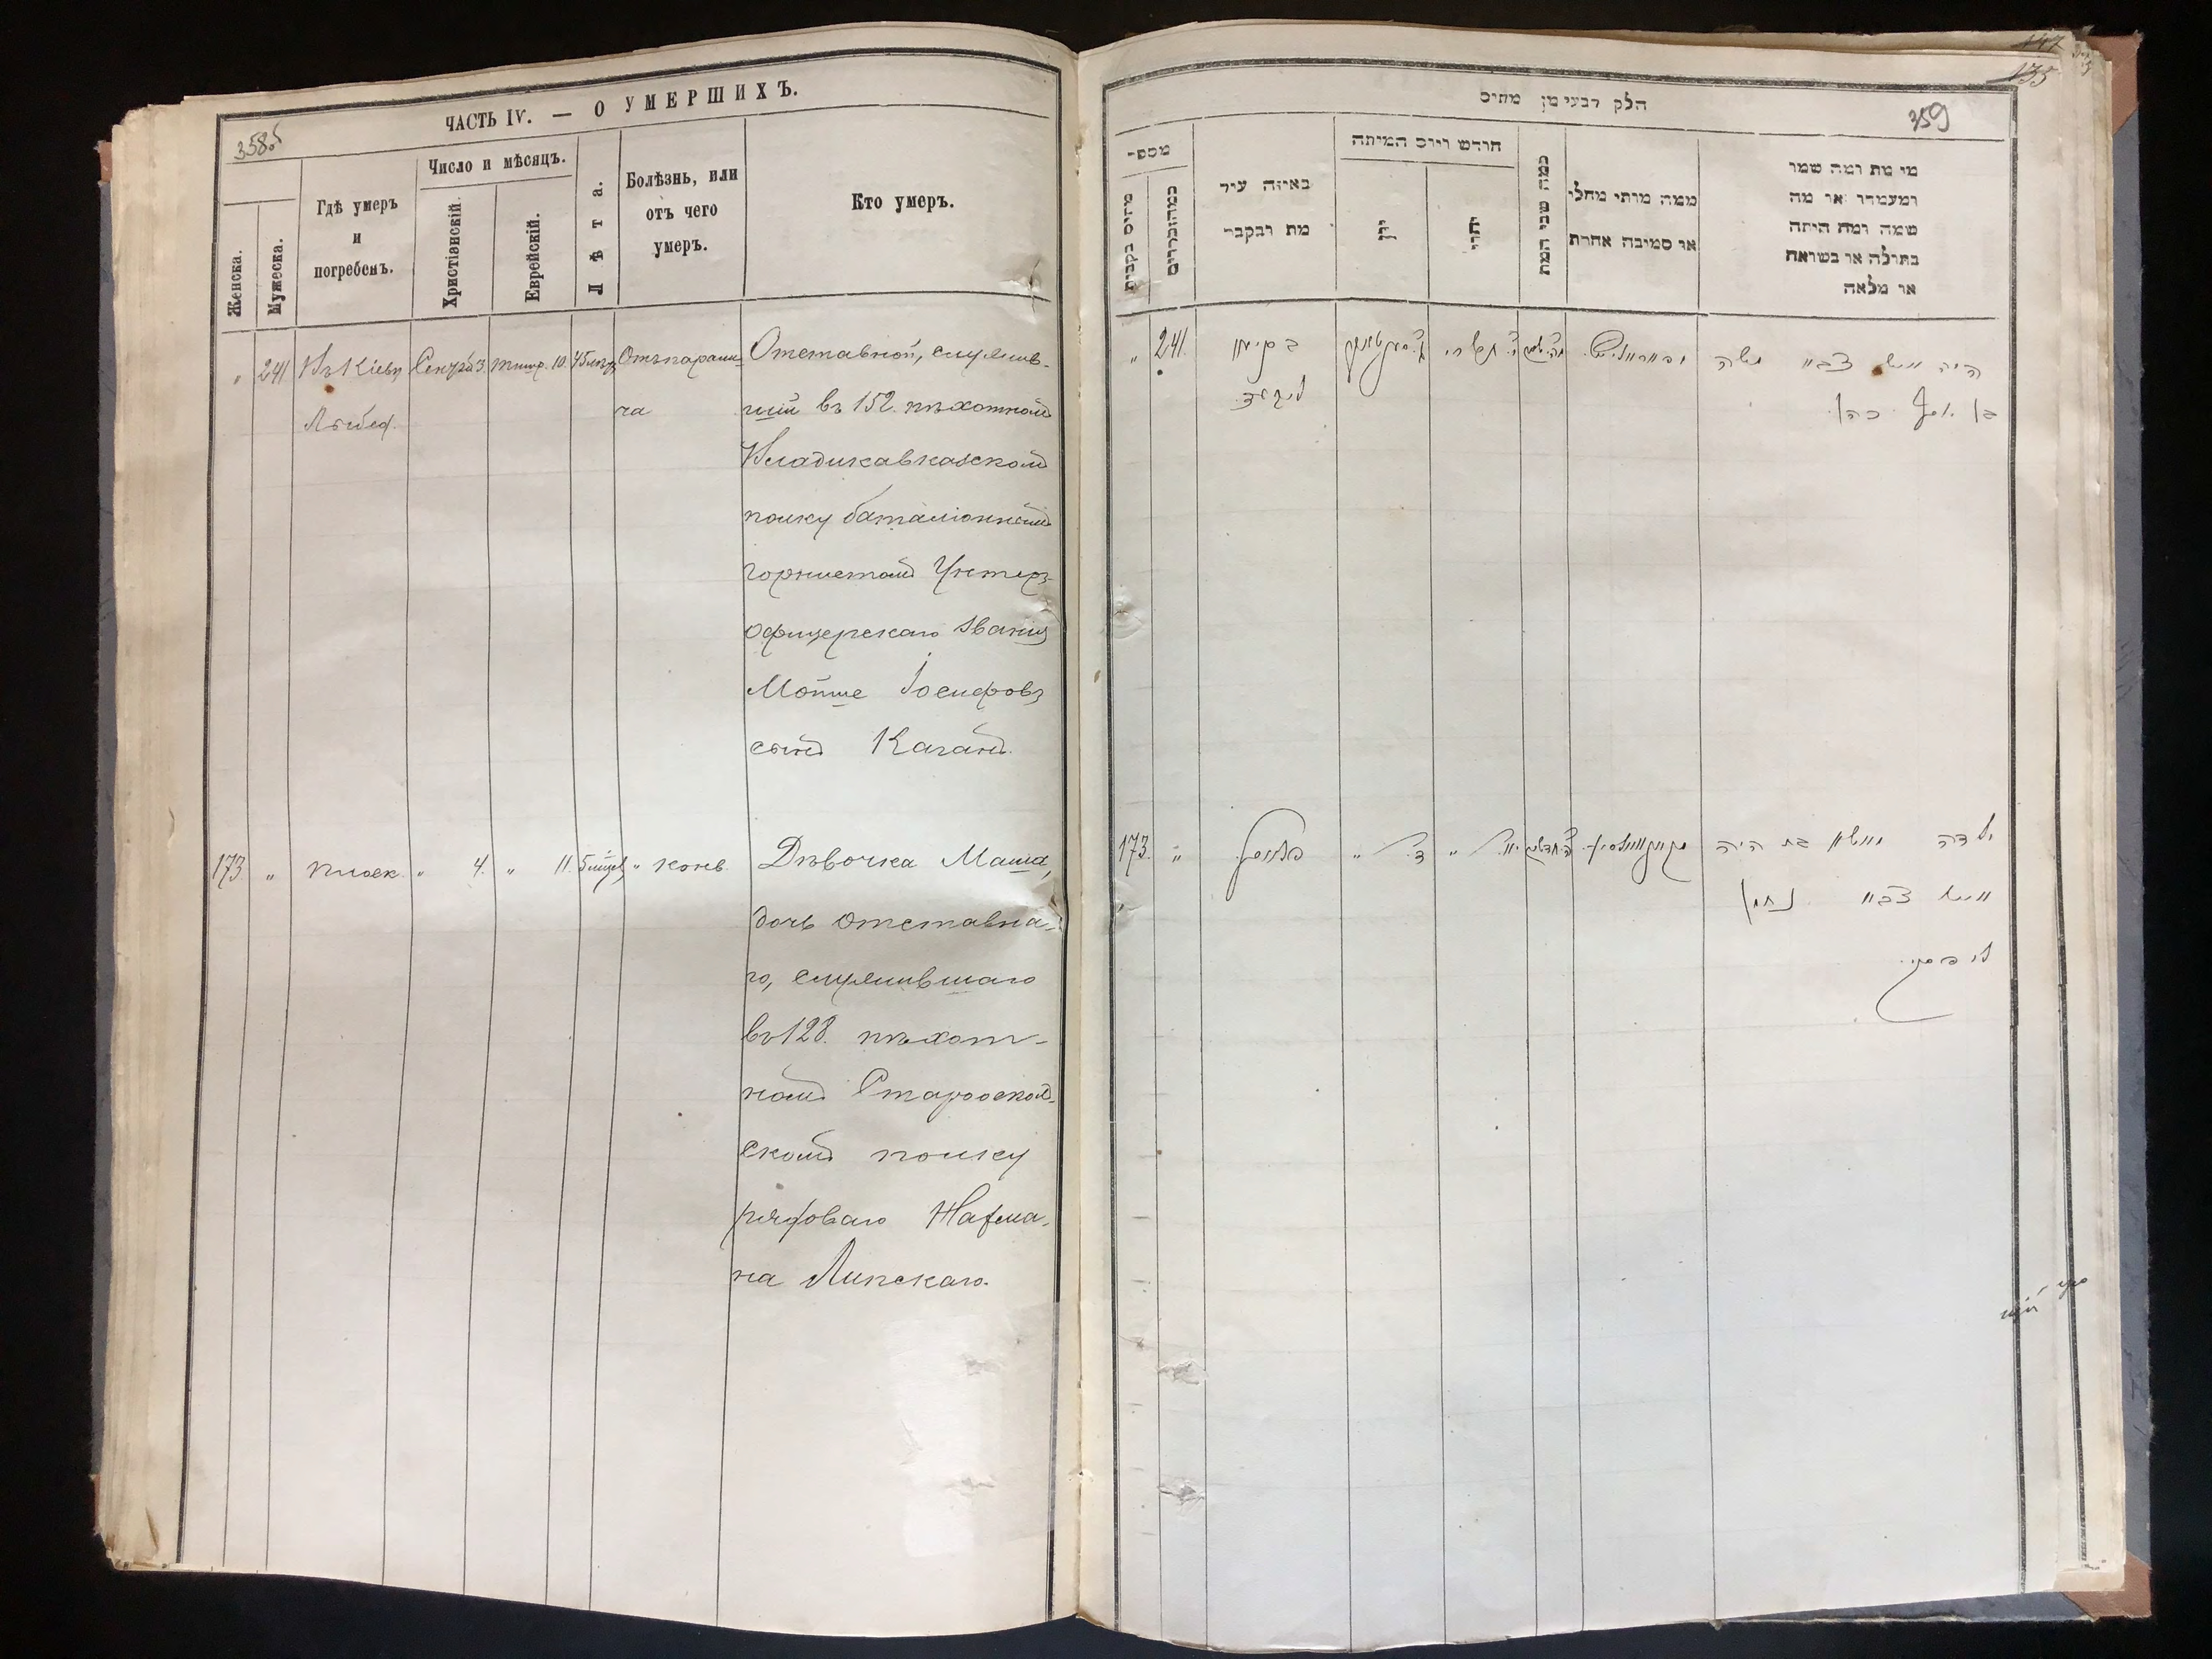 358б
ЧАСТЬ IV. — О УМЕРШИХЪ.
Женска.
Мужеска.
Гдѣ умеръ
и
погребенъ.
Число и мѣсяцъ.
Христіанскій.
Еврейскій.
Лѣта.
Болѣзнь, или
отъ чего
умеръ.
Кто умеръ.
" 241 Въ Кіевѣ
3. 10. 45 Отъ парали-
ча
Отставной, служив-
шій въ 152. пѣхотномъ
Владикавказскомъ
полку баталіоннымъ
горнистомъ Унтеръ-
офицерскаго званія
Мойше Іосифовъ
сынъ Каганъ.
173 " " 4. " 11. 5
Дѣвочка Маша,
дочь отставна-
го, служившаго
въ 128. пѣхот-
номъ Старооскол-
скомъ полку
рядоваго Нахма-
на Липскаго.
135
359
חלק רבעי מן מתים
מספר
מתים נקבות
כמה זכרים
באיזה עיר
מת ונקבר
חודש ויום המיתה
יון
יהודי
כמה שני המת
ממה מותו מחלי
או סמיבה אחרת
מי מת ומה שמו
ומעמדו או מה
שמה ומה היתה
בתולה או נשואה
או מלאה
" 241.
תשרי
היה איש צבא משה
בן יוסף כהן
173. "
ילדה מאשא בת היה
איש צבא נחמן
ליפסקי